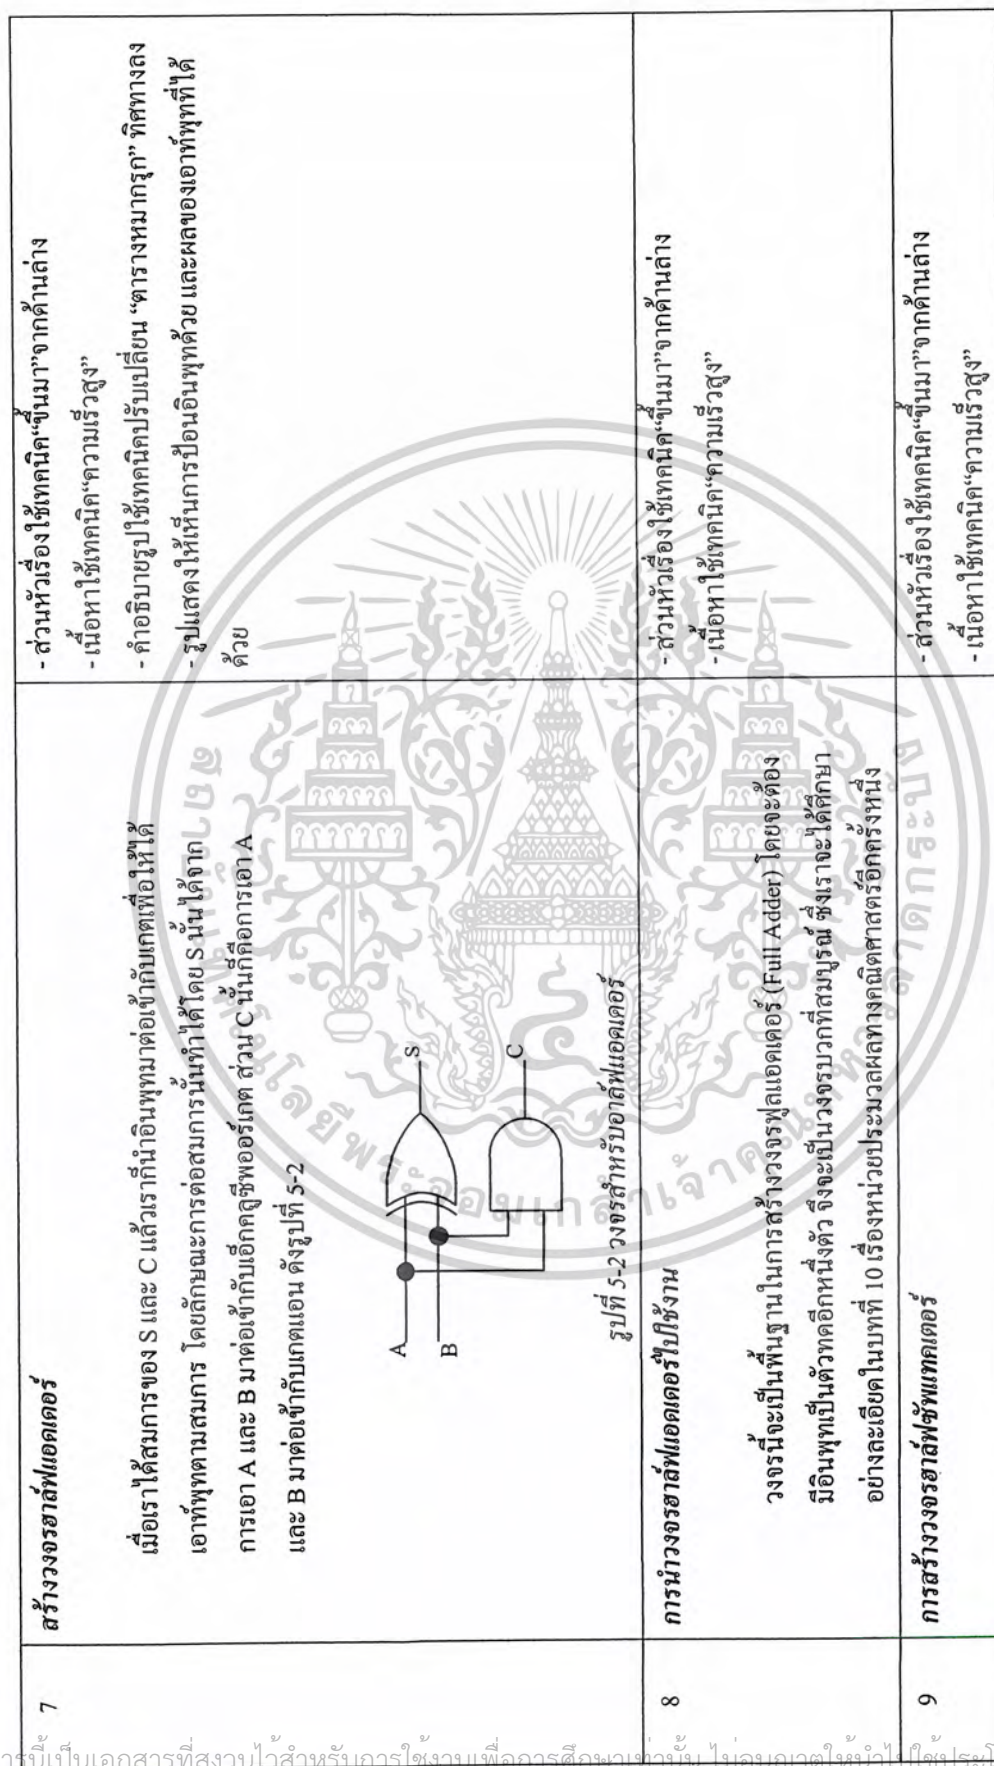 7
สร้างวงจรฮาล์ฟแอดเดอร์
เมื่อเราได้สมการของ S และ C แล้วเราก็นำอินพุทมาต่อเข้ากับเกตเพื่อให้ได้
เอาท์พุทตามสมการ โดยลักษณะการต่อสมการนั้นทำได้โดย S นั้นได้จาก
การเอา A และ B มาต่อเข้ากับเอ็กคลูซีพออร์เกต ส่วน C นั้นก็คือการเอา A
และ B มาต่อเข้ากับเกตแอน ดังรูปที่ 5-2
A
B
S
C
รูปที่ 5-2 วงจรสำหรับฮาล์ฟแอดเดอร์
- ส่วนหัวเรื่องใช้เทคนิค“ขึ้นมา”จากด้านล่าง
- เนื้อหาใช้เทคนิค“ความเร็วสูง”
- คำอธิบายรูปใช้เทคนิคปรับเปลี่ยน “ตารางหมากรุก” ทิศทางลง
- รูปแสดงให้เห็นการป้อนอินพุทด้วย และผลของเอาท์พุทที่ได้
ด้วย
8
การนำวงจรฮาล์ฟแอดเดอร์ไปใช้งาน
วงจรนี้จะเป็นพื้นฐานในการสร้างวงจรฟูลแอดเดอร์ (Full Adder) โดยจะต้อง
มีอินพุทเป็นตัวทดอีกหนึ่งตัว จึงจะเป็นวงจรบวกที่สมบูรณ์ ซึ่งเราจะได้ศึกษา
อย่างละเอียดในบทที่ 10 เรื่องหน่วยประมวลผลทางคณิตศาสตร์อีกครั้งหนึ่ง
- ส่วนหัวเรื่องใช้เทคนิค“ขึ้นมา”จากด้านล่าง
- เนื้อหาใช้เทคนิค“ความเร็วสูง”
9
การสร้างวงจรฮาล์ฟซับแทคเตอร์
- ส่วนหัวเรื่องใช้เทคนิค“ขึ้นมา”จากด้านล่าง
- เนื้อหาใช้เทคนิค“ความเร็วสูง”
สถาบันเทคโนโลยีพระจอมเกล้าเจ้าคุณทหารลาดกระบัง